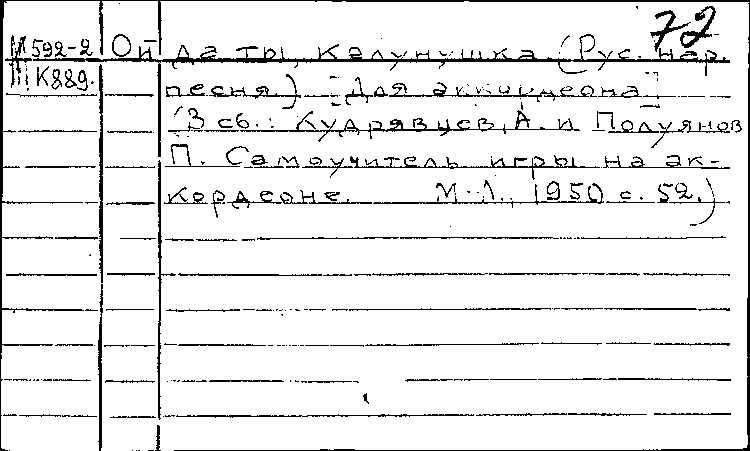 72
М592-2 Ой да ты, Калунушка (Рус. нар.
III К889. песня.) [Для аккордеона]
(В сб.: Кудрявцев, А. и Полуянов
П. Самоучитель игры на ак-
кордеоне. М-Л., 1950 с. 52.)